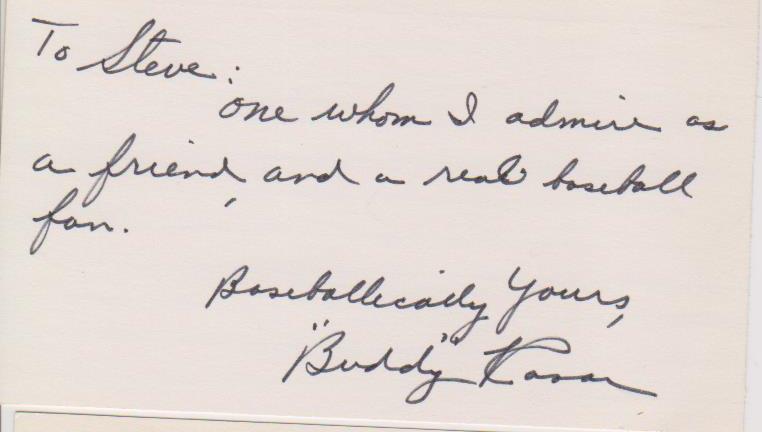 To Steve:
one whom I admire as
a friend, and a real baseball
fan.
Baseballically Yours,
"Buddy"